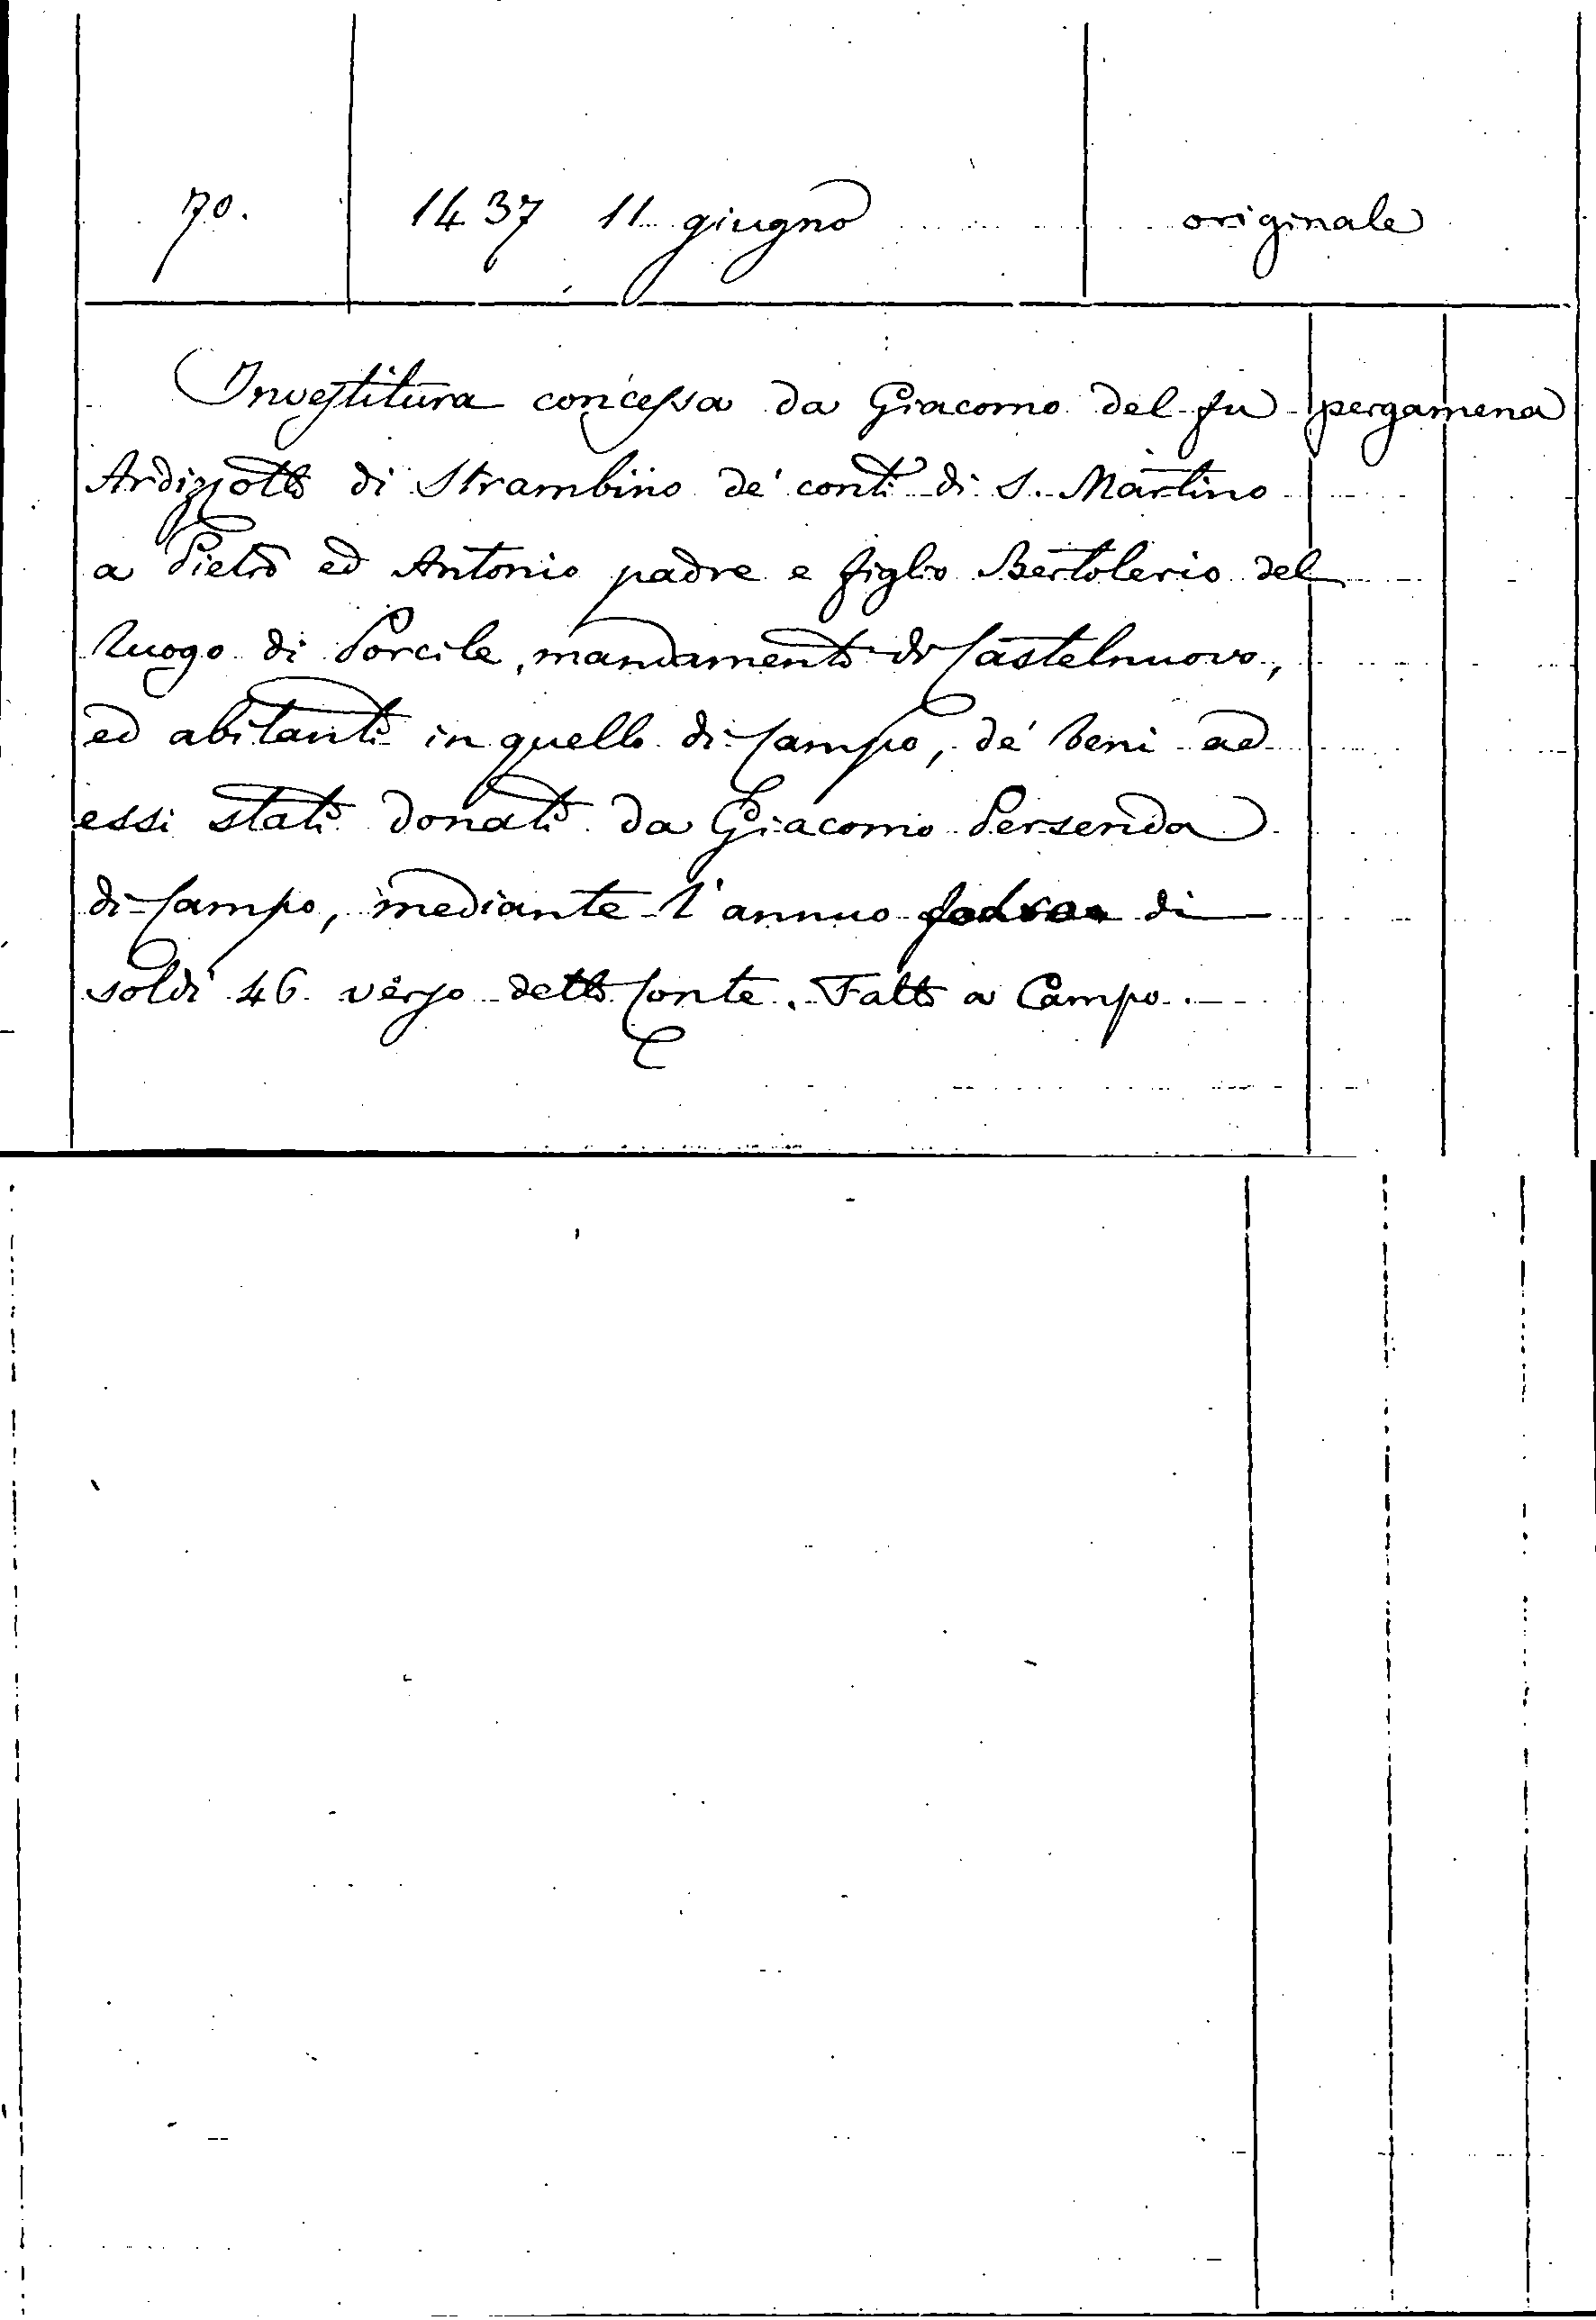 70. 1437 11 giugno originale
Investitura concessa da Giacomo del fu pergamena
Ardizzotto di Strambino de' conti di S. Martino
a Pietro ed Antonio padre e figlio Bertolerio del
luogo di Porcile, mandamento di Castelnuovo,
ed abitanti in quello di Campo, de' beni ad
essi stati donati da Giacomo Persenda
di Campo, mediante l'annuo fodro di
soldi 46 verso detto Conte. Fatto a Campo.